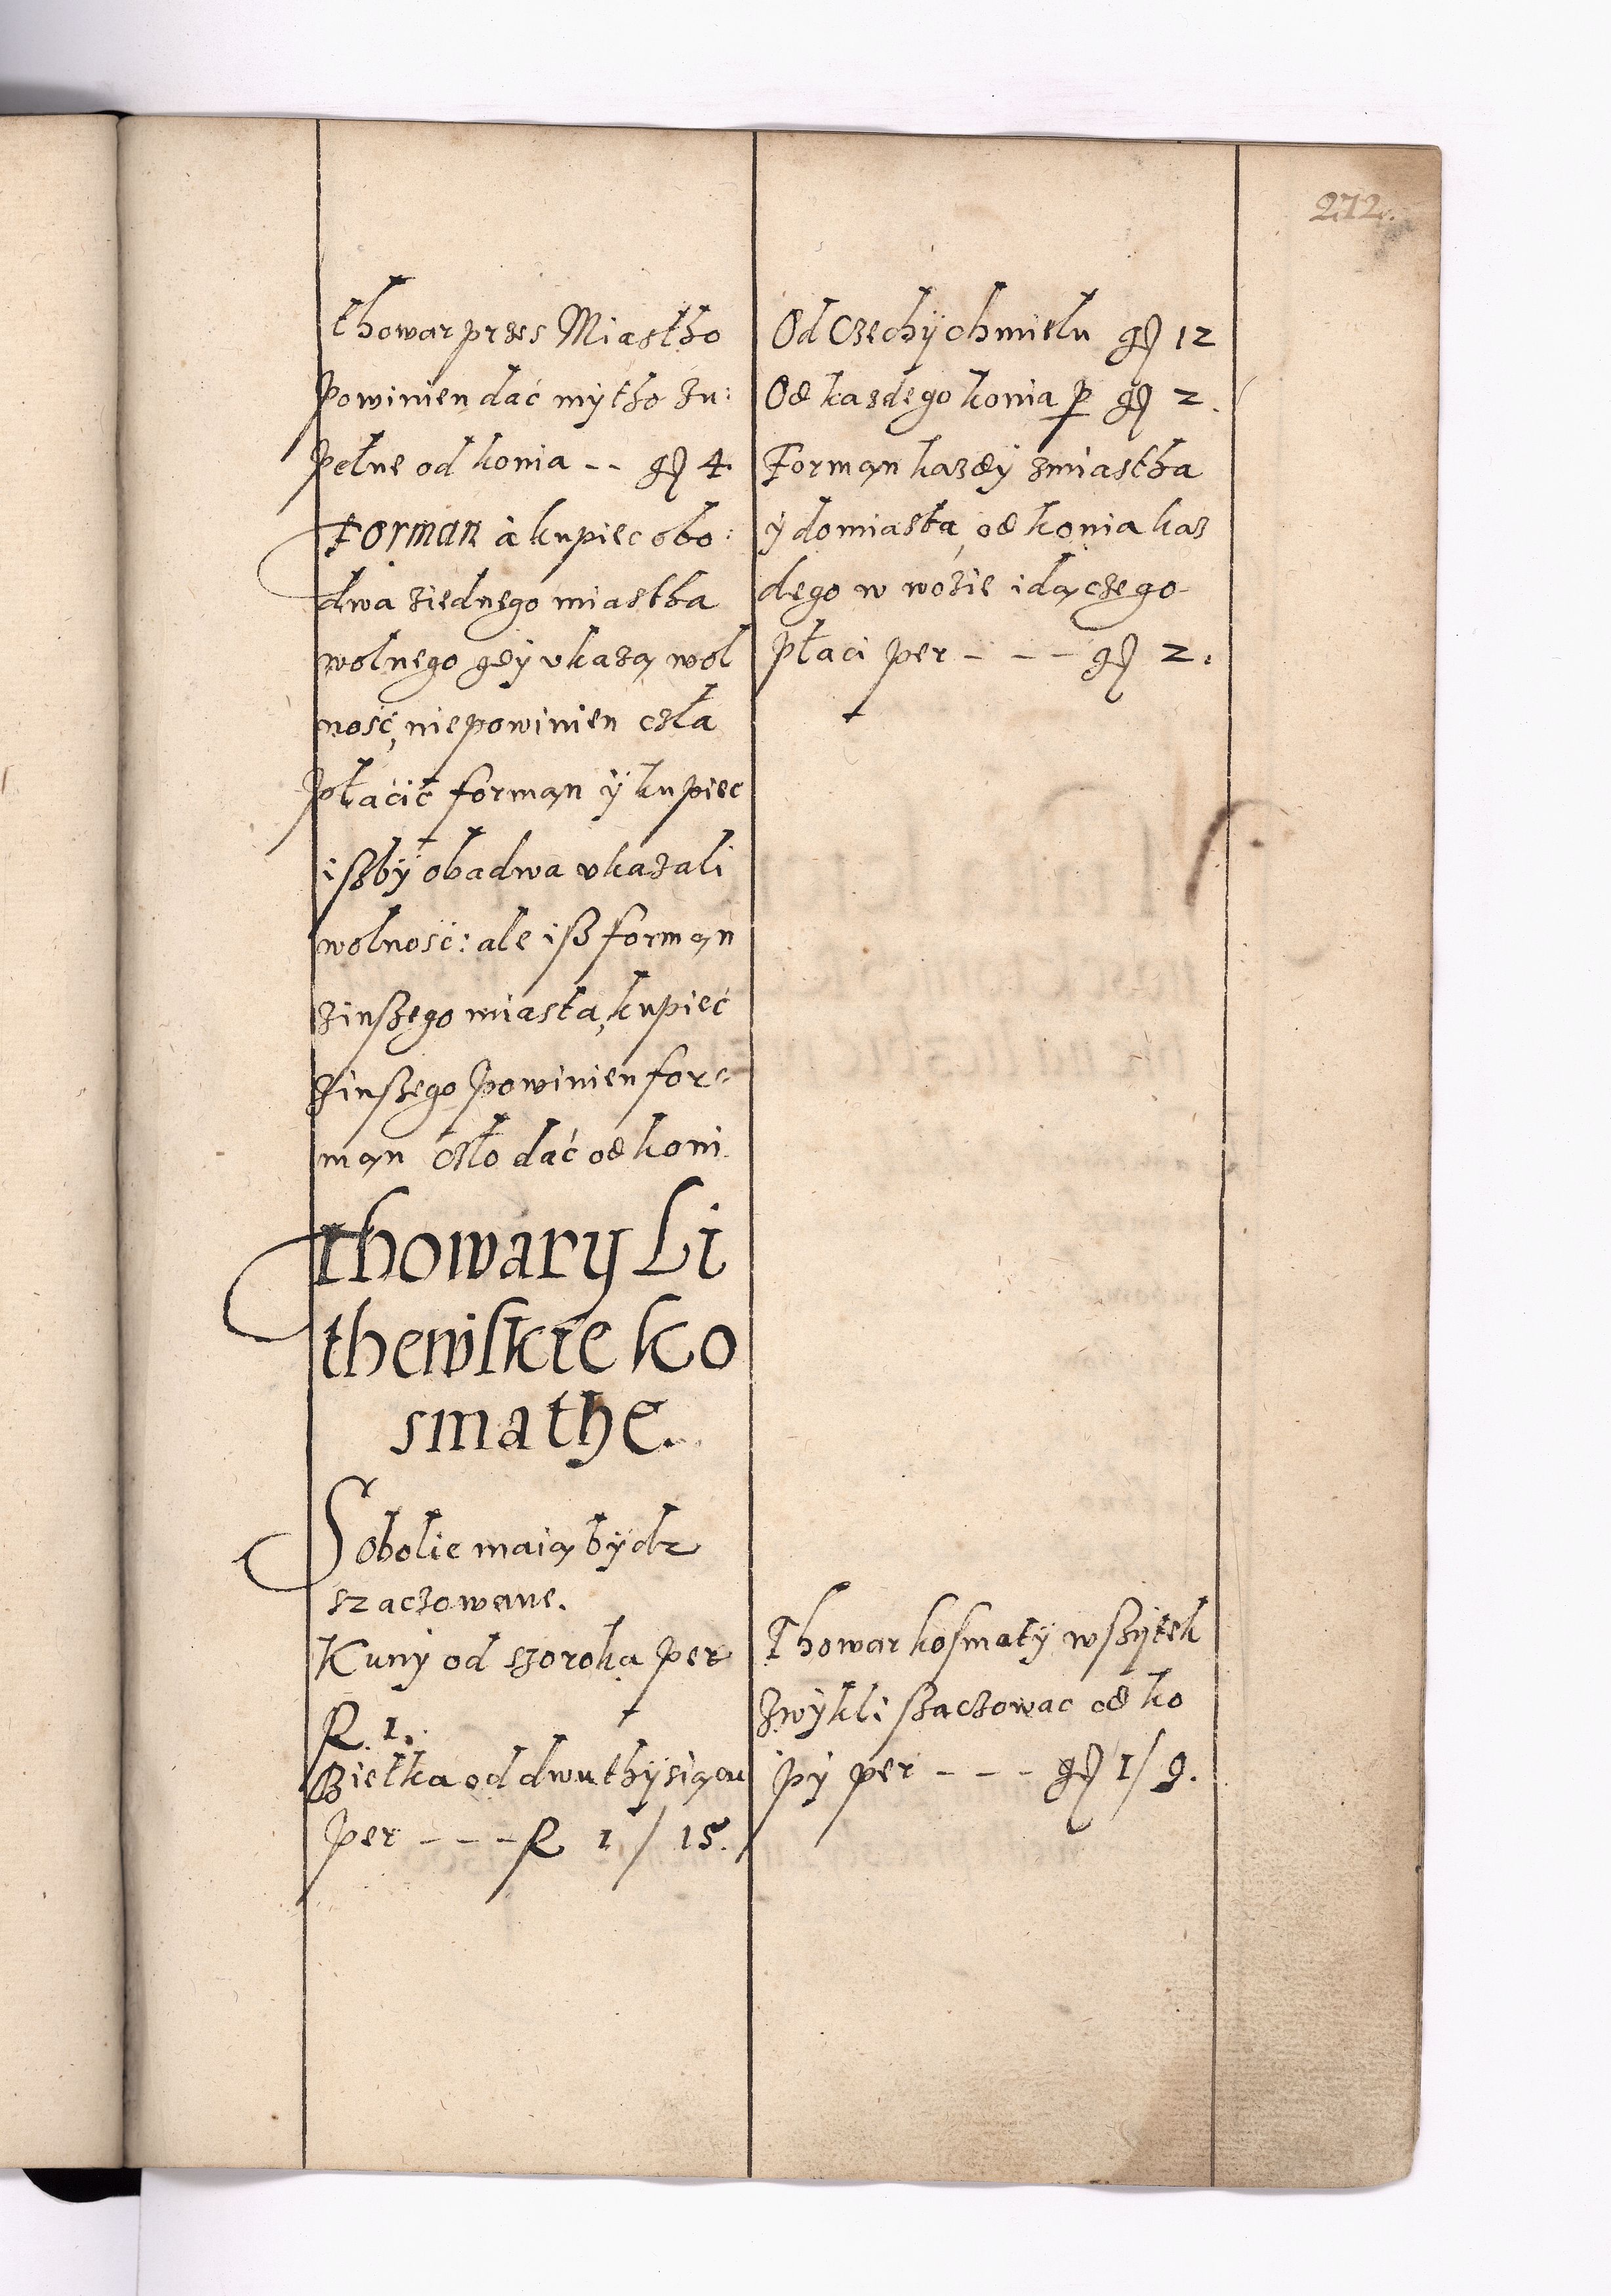 272.
thowar przes Miastho
powinien dać mÿtho zu:
pełne od konia -- gß 4.
Forman à kupiec obo:
dwa ziednego miastha
wolnego gdÿ vkazą wol
ność, niepowinien czła
płacić formąn ÿ kupiec
ißbÿ obadwa vkazali
wolnosć: ale iß formąn
zinßego miasta, kupieć
zinßego powinien for:
mąn człó dać od koni.
Thowary Li
thewskie ko
smathe.
Sobolie maią bÿdz
szaczowane.
Kunÿ od szoroka per
R. 1.
Biełka od dwu thÿsiącu
per - - - R 1/ 15.
Od Czechÿ chmielu gß 12
Od kazdego konia p gß 2.
Formąn kazdÿ zmiastha
ÿ do miasta, od konia kaz
dego w wozie idączego
płaci per - - - gß 2.
Thowar kosmatÿ wßÿtek
zwÿkli ßaczowac od ko
pÿ per - - - gß 1/ 9.